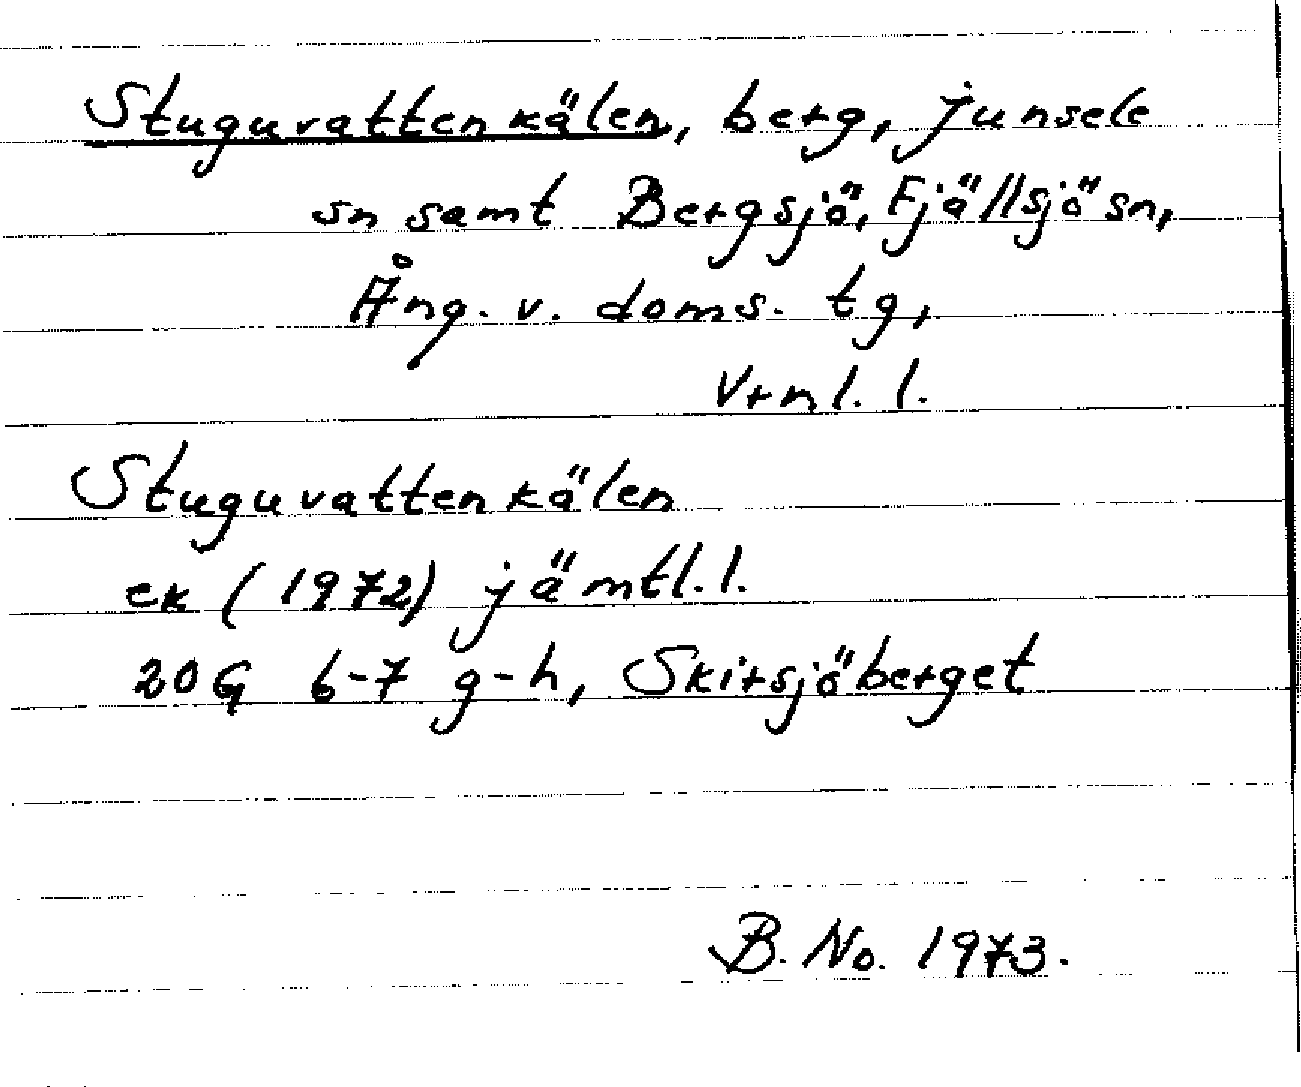 Stuguvattenkälen, berg, Junsele
sn samt Bergsjö, Fjällsjö sn,
Ång. v. doms. tg,
Vrnl. l.
Stuguvattenkälen
ek (1972) jämtl. l.
20G 6-7 g-h, Skirsjöberget
B. No. 1973.